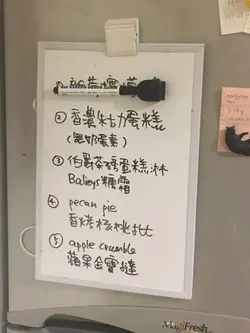 ② 香濃朱古力蛋糕
(無奶蛋素)
③ 伯爵茶磅蛋糕,淋
Balieys糖霜
④ pecan pie
香烤核桃批
⑤ apple crumble
蘋果金寶撻
MagiFresh